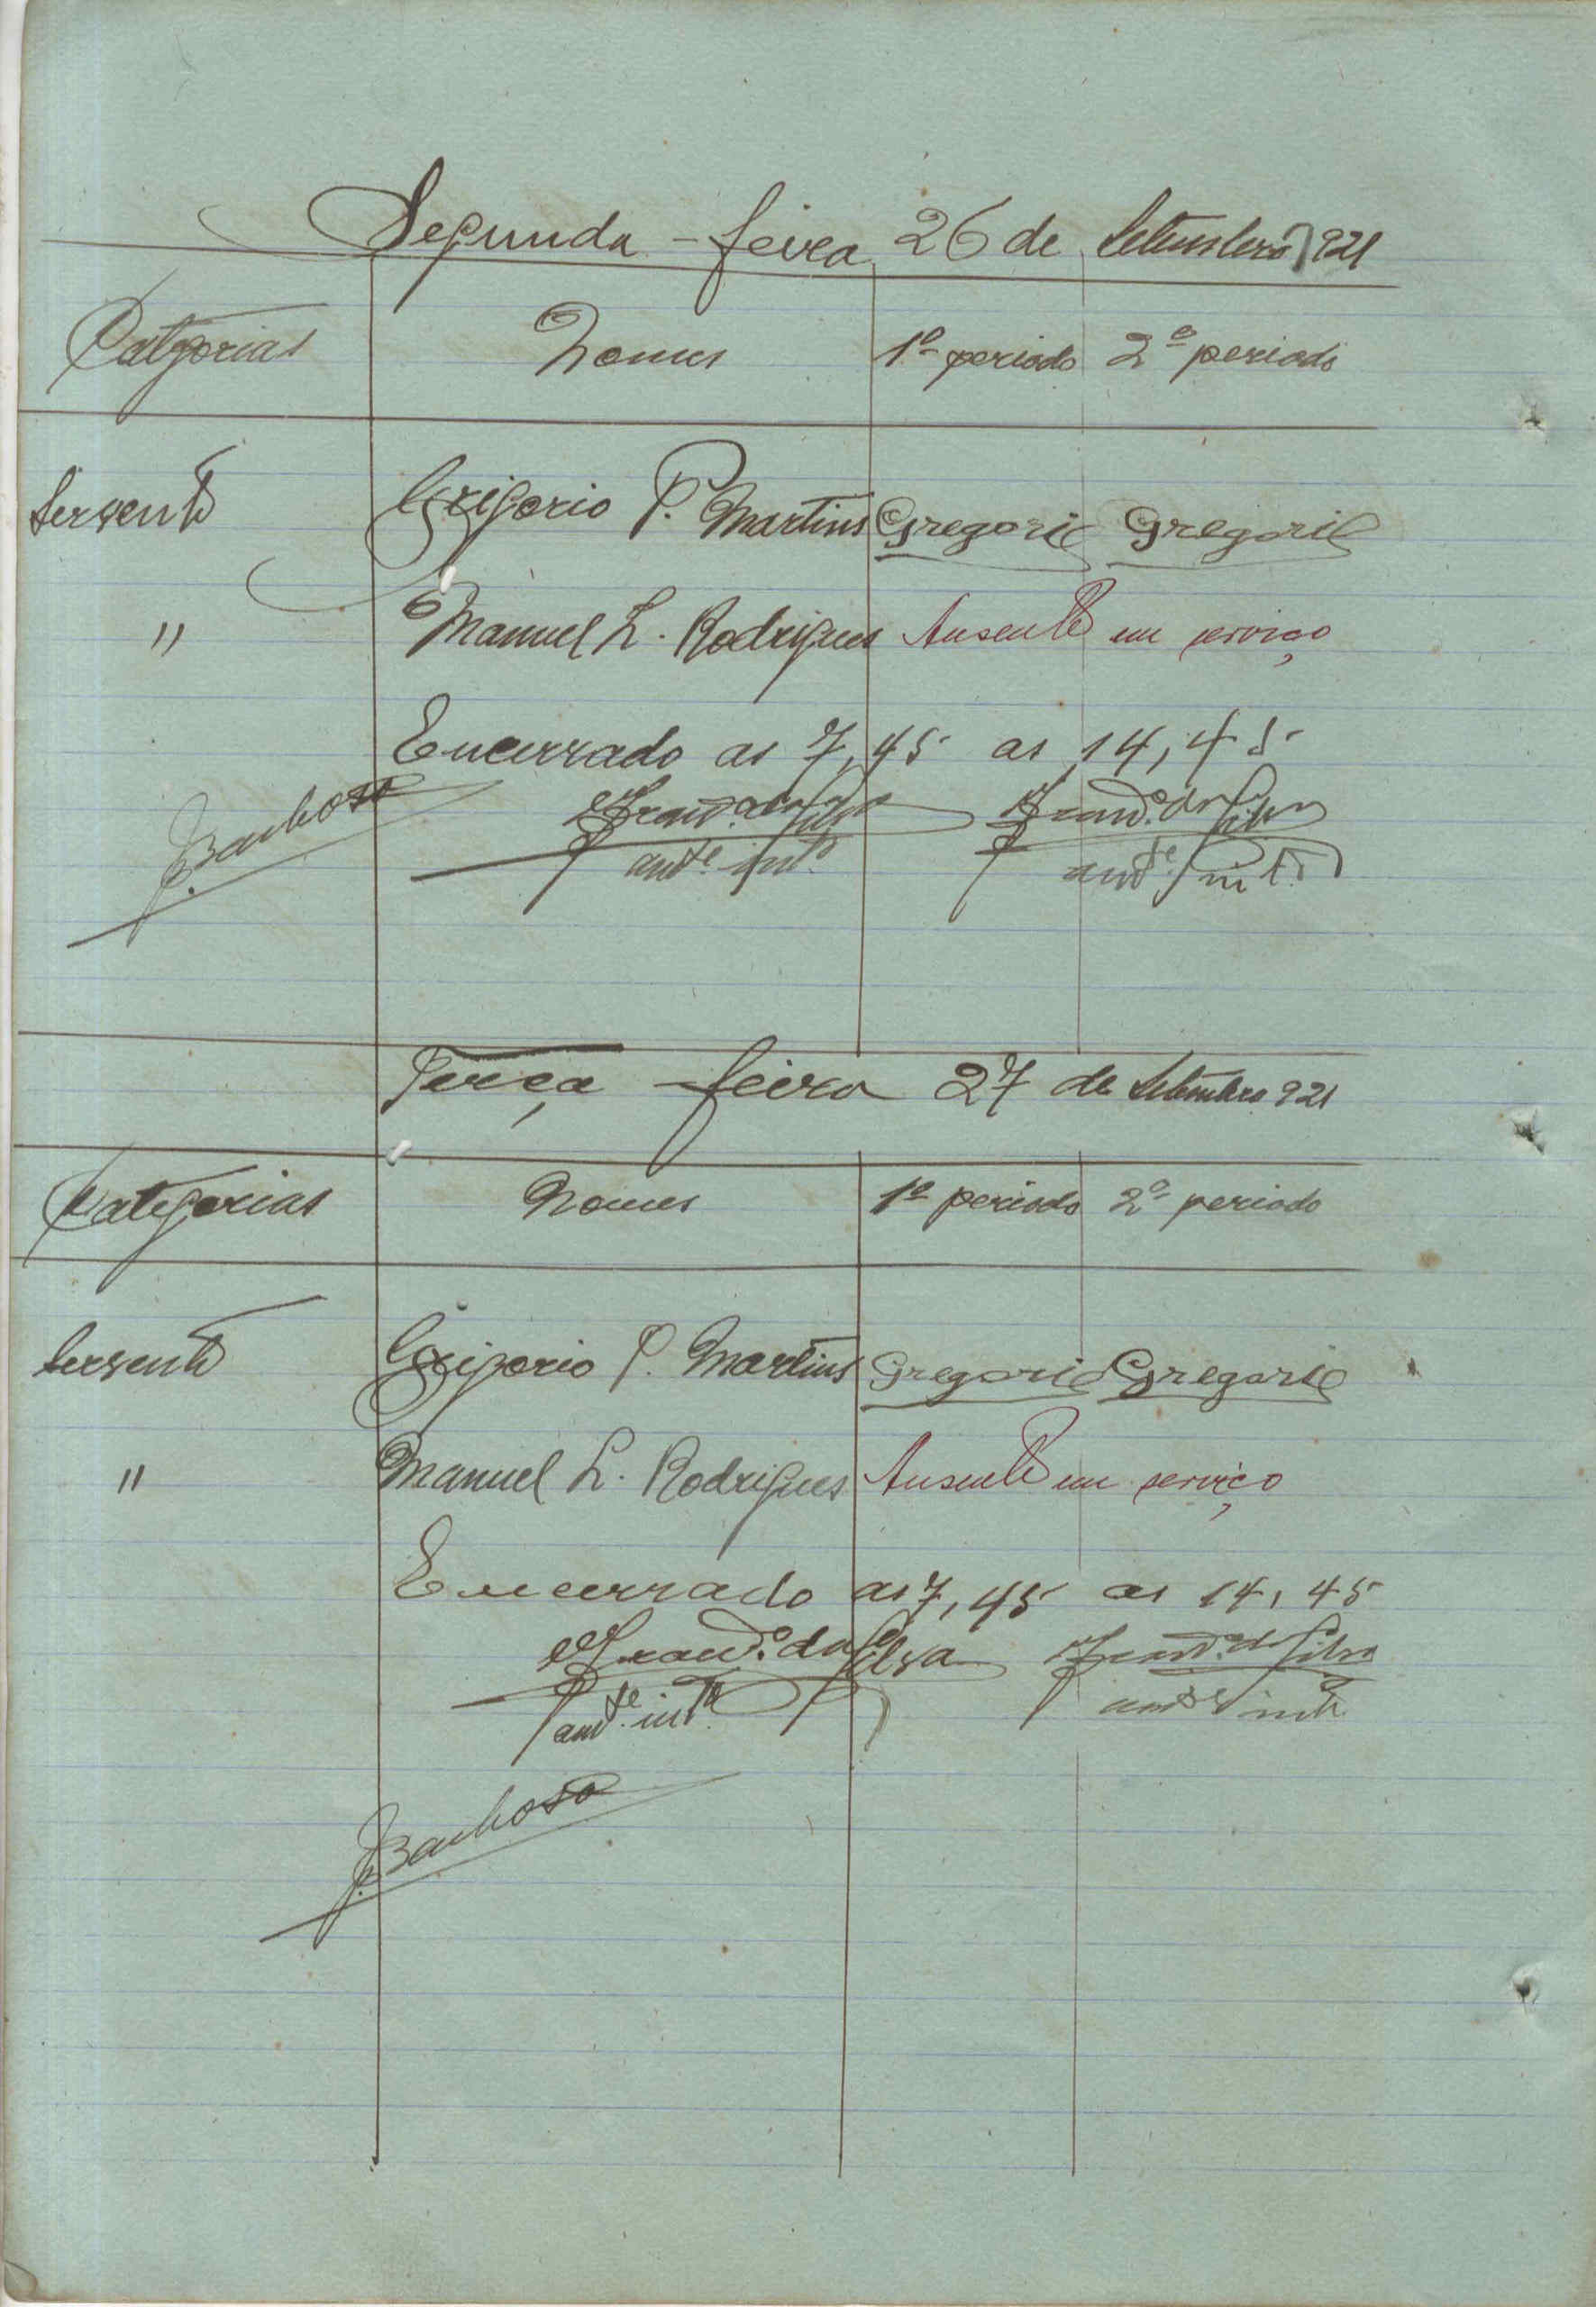 Segunda - feira 26 de Setembro 921
Categorias Nomes 1º periodo 2º periodo
Servente Grigorio P. Martins Gregorio Gregorio
" Manuel L. Rodrigues Ausente em serviço
Encerrado as 7,45 as 14,45
Franco. da Silva Franco. da Silva
J. Barbosa
Terça feira 27 de Setembro 921
Categorias Nomes 1º periodo 2º periodo
Servente Grigorio P. Martins Gregorio Gregorio
" Manuel L. Rodrigues Ausente em serviço
Encerrado as 7,45 as 14,45
Franco. da Silva Franco. da Silva
J. Barbosa